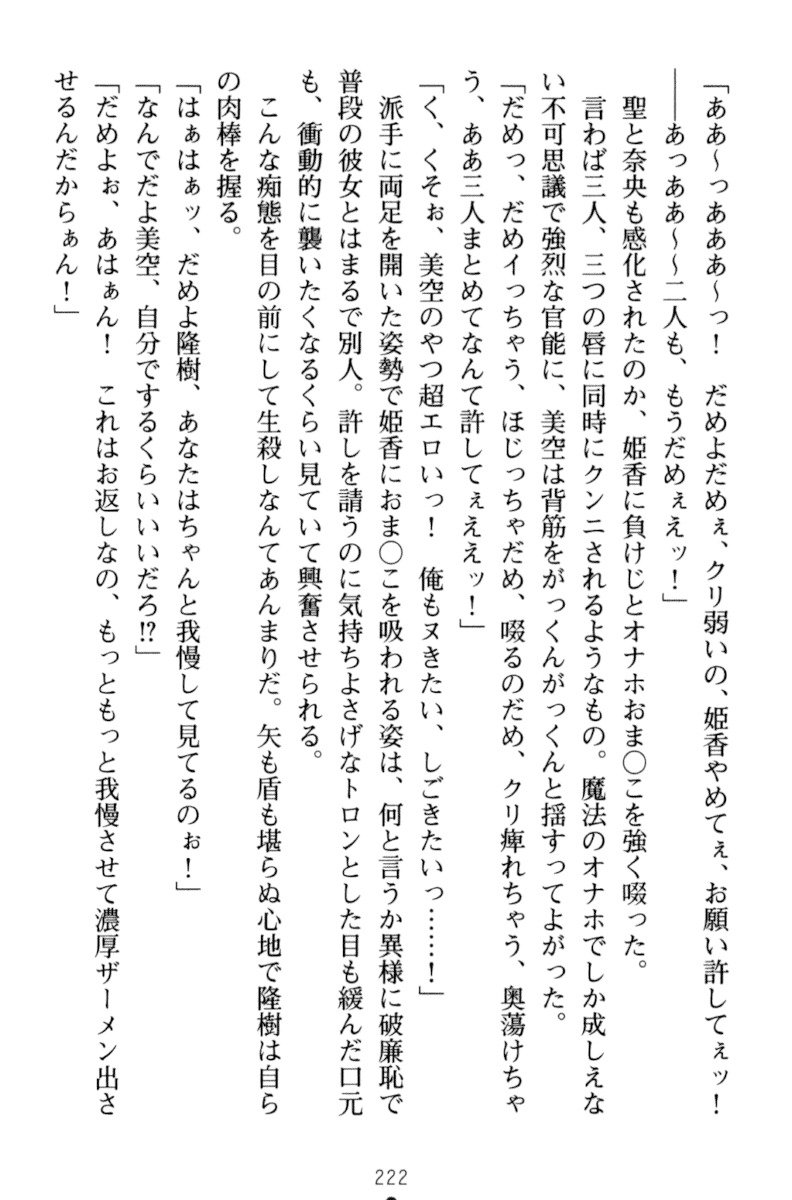 「ああ〜っあああ〜っ！　だめよだめぇ、クリ弱いの、姫香やめてぇ、お願い許してぇッ！
――あっああ〜〜二人も、もうだめぇえッ！」
聖と奈央も感化されたのか、姫香に負けじとオナホおま〇こを強く啜った。
言わば三人、三つの唇に同時にクンニされるようなもの。魔法のオナホでしか成しえな
い不可思議で強烈な官能に、美空は背筋をがっくんがっくんと揺すってよがった。
「だめっ、だめイっちゃう、ほじっちゃだめ、啜るのだめ、クリ痺れちゃう、奥蕩けちゃ
う、ああ三人まとめてなんて許してぇええッ！」
「く、くそぉ、美空のやつ超エロいっ！　俺もヌきたい、しごきたいっ……！」
派手に両足を開いた姿勢で姫香におま〇こを吸われる姿は、何と言うか異様に破廉恥で
普段の彼女とはまるで別人。許しを請うのに気持ちよさげなトロンとした目も緩んだ口元
も、衝動的に襲いたくなるくらい見ていて興奮させられる。
こんな痴態を目の前にして生殺しなんてあんまりだ。矢も盾も堪らぬ心地で隆樹は自ら
の肉棒を握る。
「はぁはぁッ、だめよ隆樹、あなたはちゃんと我慢して見てるのぉ！」
「なんでだよ美空、自分でするくらいいいだろ!?」
「だめよぉ、あはぁん！　これはお返しなの、もっともっと我慢させて濃厚ザーメン出さ
せるんだからぁん！」
222